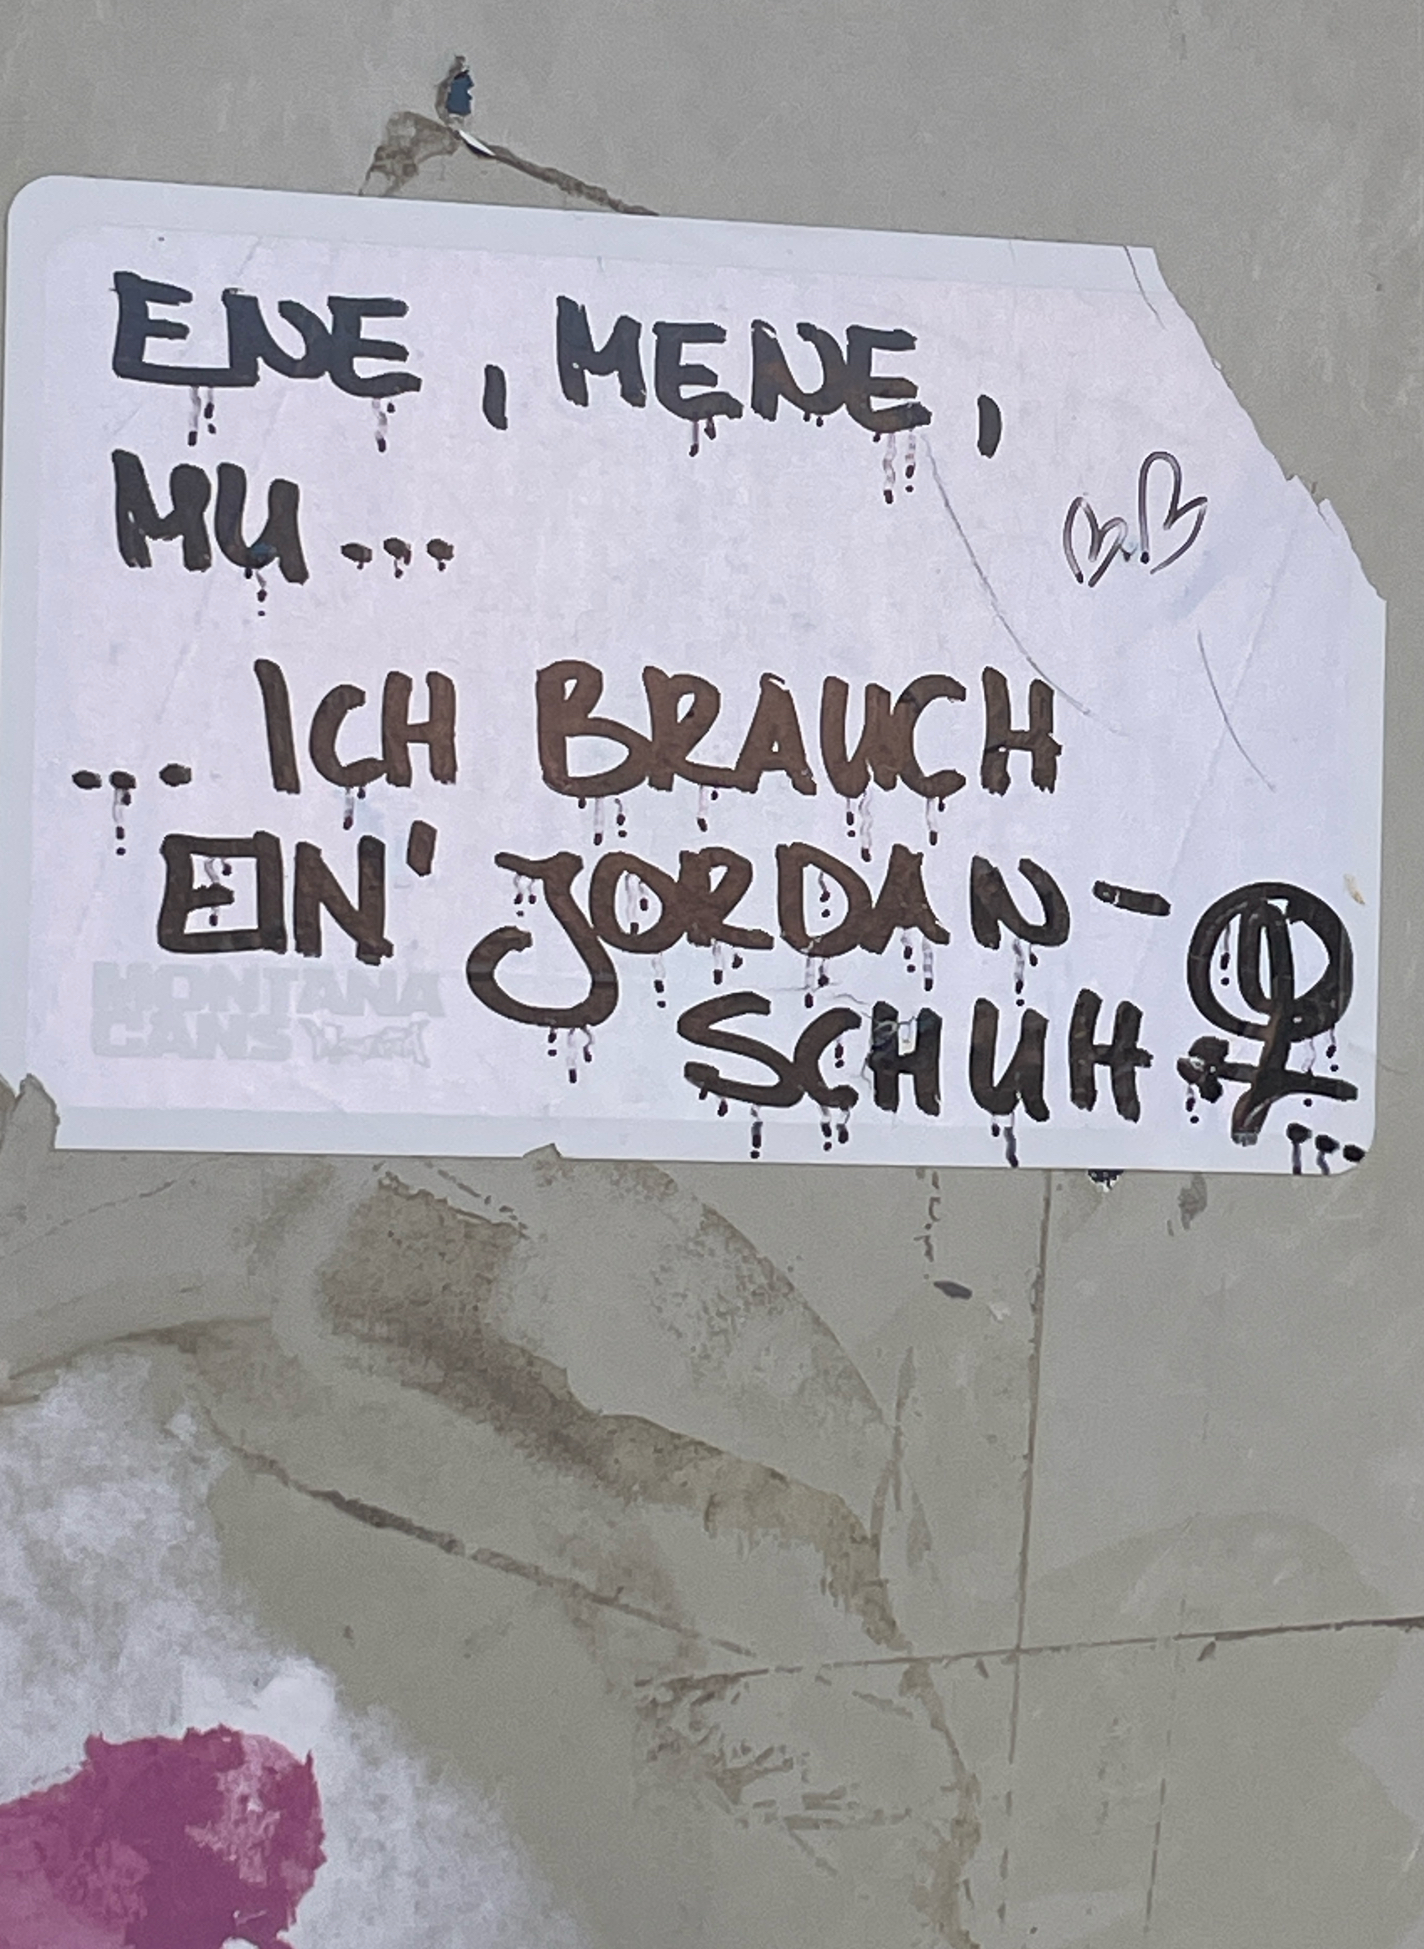 ENE, MENE,
MU...
... ICH BRAUCH
EIN' JORDAN-
SCHUH
MONTANA
CANS